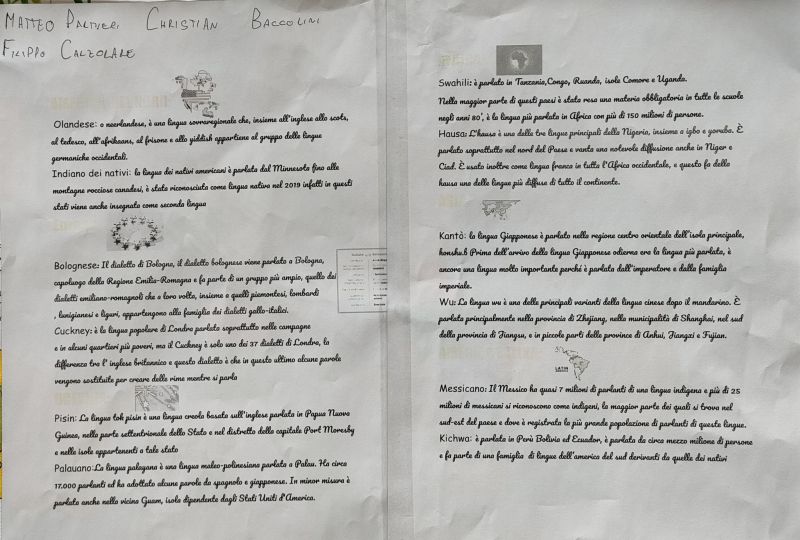 MATTEO PALTIERI CHRISTIAN BACCOLINI
FILIPPO CALZOLARE
Olandese: o neerlandese, è una lingua sovraregionale che, insieme all'inglese allo scots,
al tedesco, all'afrikaans, al frisone e allo yiddish appartiene al gruppo delle lingue
germaniche occidentali.
Indiano dei nativi: la lingua dei nativi americani è parlata dal Minnesota fino alle
montagne rocciose canadesi, è stata riconosciuta come lingua nativa nel 2019 infatti in questi
stati viene anche insegnata come seconda lingua
Bolognese: Il dialetto di Bologna, il dialetto bolognese viene parlato a Bologna,
capoluogo della Regione Emilia-Romagna e fa parte di un gruppo più ampio, quello dei
dialetti emiliano-romagnoli che a loro volta, insieme a quelli piemontesi, lombardi
, lunigianesi e liguri, appartengono alla famiglia dei dialetti gallo-italici.
Cuckney: è la lingua popolare di Londra parlata soprattutto nelle campagne
e in alcuni quartieri più poveri, ma il Cuckney è solo uno dei 37 dialetti di Londra, la
differenza tra l' inglese britannico e questo dialetto è che in questo ultimo alcune parole
vengono sostituite per creare delle rime mentre si parla
Pisin: La lingua tok pisin è una lingua creola basata sull'inglese parlata in Papua Nuova
Guinea, nella parte settentrionale dello Stato e nel distretto della capitale Port Moresby
e nelle isole appartenenti a tale stato
Palauano:La lingua palauana è una lingua maleo-polinesiana parlata a Palau. Ha circa
17.000 parlanti ed ha adottato alcune parole da spagnolo e giapponese. In minor misura è
parlata anche nella vicina Guam, isola dipendente dagli Stati Uniti d'America.
Swahili: è parlato in Tanzania,Congo, Ruanda, isole Comore e Uganda.
Nella maggior parte di questi paesi è stata resa una materia obbligatoria in tutte le scuole
negli anni 80', è la lingua più parlata in Africa con più di 150 milioni di persone.
Hausa: L'hausa è una delle tre lingue principali della Nigeria, insieme a igbo e yoruba. È
parlato soprattutto nel nord del Paese e vanta una notevole diffusione anche in Niger e
Ciad. È usato inoltre come lingua franca in tutta l'Africa occidentale, e questo fa della
hausa una delle lingue più diffuse di tutto il continente.
Kantò: la lingua Giapponese è parlata nella regione centro orientale dell'isola principale,
honshu.b Prima dell'arrivo della lingua Giapponese odierna era la lingua più parlata, è
ancora una lingua molto importante perché è parlata dall'imperatore e dalla famiglia
imperiale.
Wu: La lingua wu è una delle principali varianti della lingua cinese dopo il mandarino. È
parlata principalmente nella provincia di Zhejiang, nella municipalità di Shanghai, nel sud
della provincia di Jiangsu, e in piccole parti delle province di Anhui, Jiangxi e Fujian.
LATIN
Messicano: Il Messico ha quasi 7 milioni di parlanti di una lingua indigena e più di 25
milioni di messicani si riconoscono come indigeni, la maggior parte dei quali si trova nel
sud-est del paese e dove è registrata la più grande popolazione di parlanti di queste lingue.
Kichwa: è parlata in Perù Bolivia ed Ecuador, è parlata da circa mezzo milione di persone
e fa parte di una famiglia di lingue dell'america del sud derivanti da quelle dei nativi